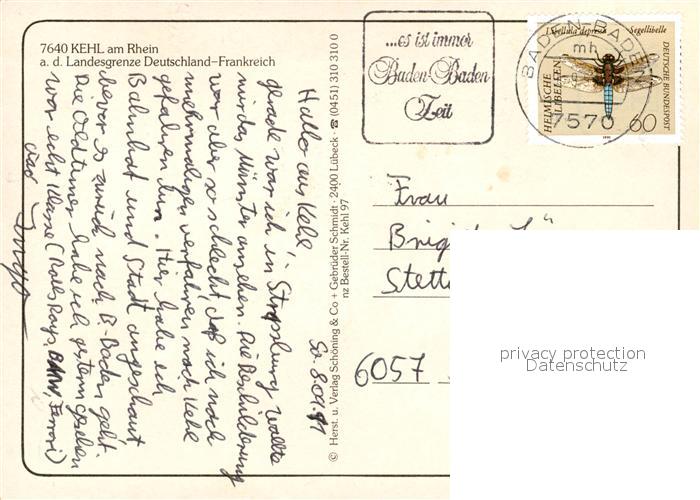 7640 KEHL am Rhein
a. d. Landesgrenze Deutschland–Frankreich
...es ist immer
Baden-Baden
Zeit
BADEN-BADEN
mh
7570
Libellula depressa Segellibelle
HEIMISCHE LIBELLEN
DEUTSCHE BUNDESPOST
60
So. 8.09.91
Hallo aus Kehl,
gerade war ich in Strassburg wollte
mir das Münster ansehen. Die Beschilderung
war aber so schlecht, daß ich nach
mehrmaligen verfahren nach Kehl
gefahren bin. Hier habe ich
Bahnhof und Stadt angeschaut
bevor es zurück nach B-Baden geht.
Die Oldtimer habe ich gestern gesehen
war echt Klasse (Rolls Roys, BMW, Ferrari)
© Herst. u. Verlag Schöning & Co + Gebrüder Schmidt · 2400 Lübeck · ☎ (0451) 310 310 0
nz Bestell-Nr. Kehl 97
Frau
6057
privacy protection
Datenschutz